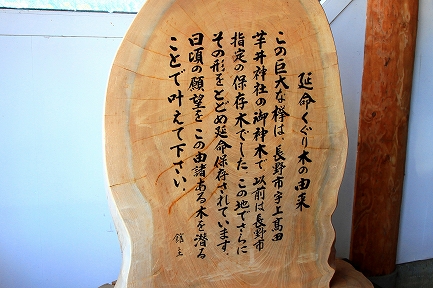 延命くぐり木の由来
この巨大な欅は、長野市宇上高田
芋井神社の御神木で、以前は長野市
指定の保存木でした。この地でさらに
その形をとどめ延命保存されています。
日頃の願望を、この由諸ある木を潜る
ことで叶えて下さい。
館主